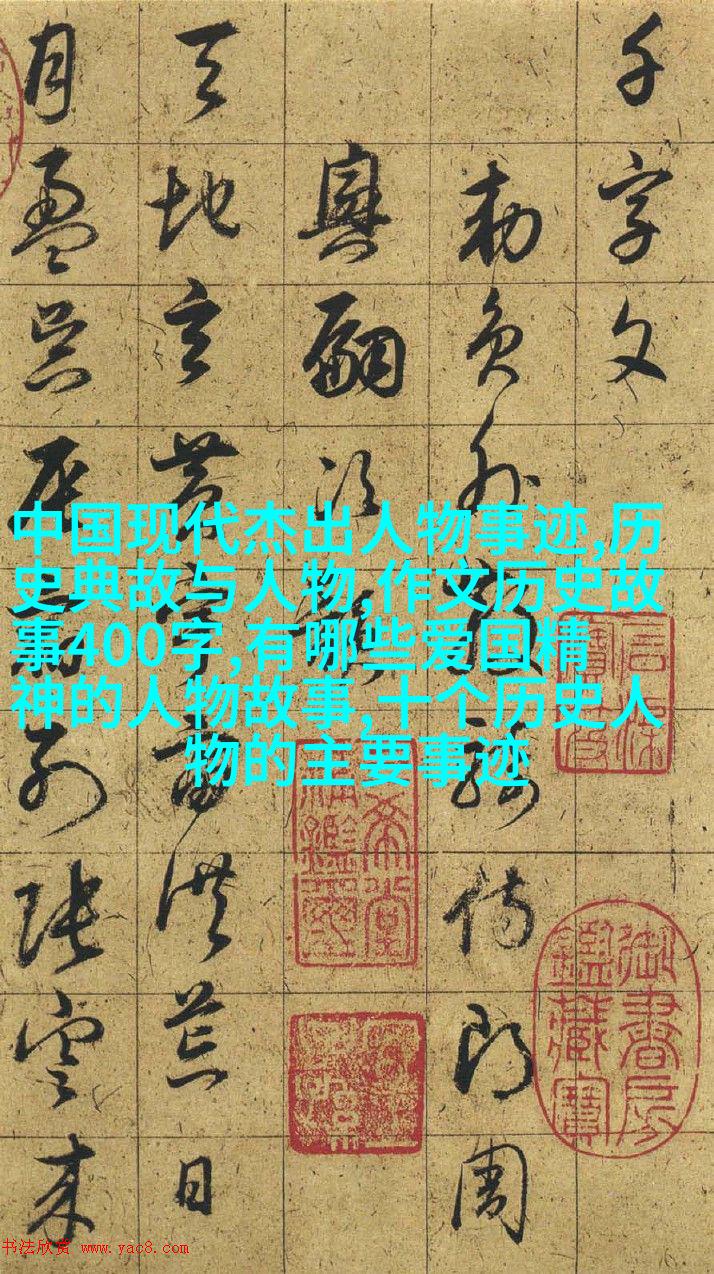 千字文
勑員外散騎侍郎周
興嗣次韻
天地玄黄宇宙洪荒日
月盈昃辰宿列張寒来
中国现代杰出人物事迹,历
史典故与人物,作文历史故
事400字,有哪些爱国精
神的人物故事,十个历史人
物的主要事迹
御書房鑑藏寶
书法欣赏 www.yac8.com